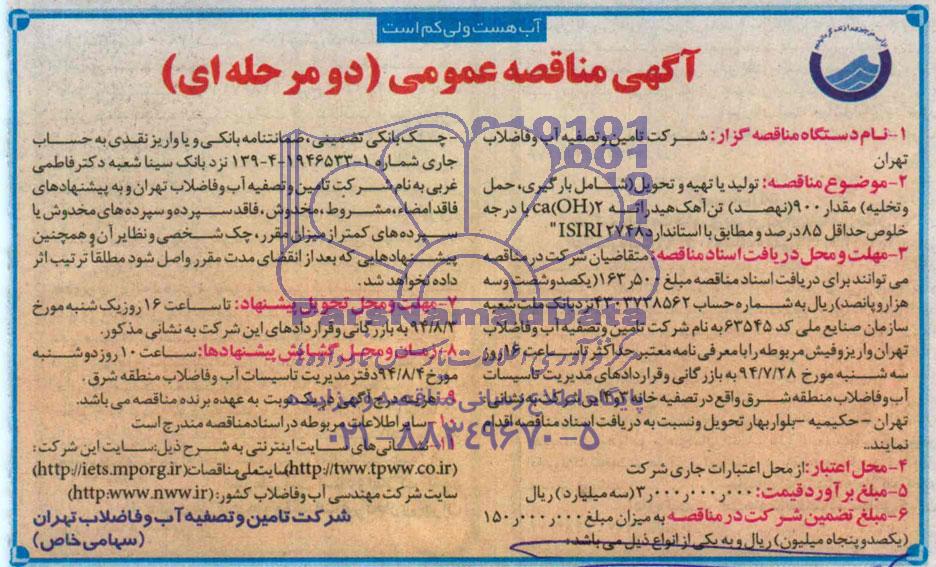 آب هست ولی کم است
آگهی مناقصه عمومی (دو مرحله ای)
۱-نام دستگاه مناقصه گزار: شرکت تامین و تصفیه آب و فاضلاب
تهران
۲-موضوع مناقصه: تولید یا تهیه و تحویل (شامل بارگیری، حمل
و تخلیه) مقدار ۹۰۰ (نهصد) تن آهک هیدراته ca(OH)۲ با درجه
خلوص حداقل ۸۵ درصد و مطابق با استاندارد ISIRI ۲۷۴۸"
۳-مهلت و محل دریافت اسناد مناقصه: متقاضیان شرکت در مناقصه
می توانند برای دریافت اسناد مناقصه مبلغ ۱۶۳٫۵۰۰ (یکصد و شصت و سه
هزار و پانصد) ریال به شماره حساب ۴۳۰۳۷۳۸۵۶۲ نزد بانک ملت شعبه
سازمان صنایع ملی کد ۶۳۵۴۵ به نام شرکت تامین و تصفیه آب و فاضلاب
تهران واریز و فیش مربوطه را با معرفی نامه معتبر حداکثر تا ساعت ۱۶ روز
سه شنبه مورخ ۹۴/۷/۲۸ به بازرگانی و قراردادهای مدیریت تاسیسات
آب و فاضلاب منطقه شرق واقع در تصفیه خانه به نشانی:
تهران - حکیمیه - بلوار بهار تحویل و نسبت به دریافت اسناد مناقصه اقدام
نمایند.
۴-محل اعتبار: از محل اعتبارات جاری شرکت
۵-مبلغ برآورد قیمت: ۳٫۰۰۰٫۰۰۰٫۰۰۰ (سه میلیارد) ریال
۶-مبلغ تضمین شرکت در مناقصه به میزان مبلغ ۱۵۰٫۰۰۰٫۰۰۰
(یکصد و پنجاه میلیون) ریال و به یکی از انواع ذیل می باشد:
-چک بانکی تضمینی، ضمانتنامه بانکی و یا واریز نقدی به حساب
جاری شماره ۱-۱۹۴۶۵۳۳-۴-۱۳۹ نزد بانک سینا شعبه دکتر فاطمی
غربی به نام شرکت تامین و تصفیه آب و فاضلاب تهران و به پیشنهادهای
فاقد امضاء، مشروط، مخدوش، فاقد سپرده و سپرده های مخدوش یا
سپرده های کمتر از میزان مقرر، چک شخصی و نظایر آن و همچنین
پیشنهادهایی که بعد از انقضای مدت مقرر واصل شود مطلقا ترتیب اثر
داده نخواهد شد.
۷-مهلت و محل تحویل پیشنهاد: تا ساعت ۱۶ روز یکشنبه مورخ
۹۴/۸/۳ به بازرگانی و قراردادهای این شرکت به نشانی مذکور.
۸-زمان و محل گشایش پیشنهادها: ساعت ۱۰ روز دوشنبه
مورخ ۹۴/۸/۴ دفتر مدیریت تاسیسات آب و فاضلاب منطقه شرق.
۹-هزینه درج آگهی در یک نوبت به عهده برنده مناقصه می باشد.
۱۰-سایر اطلاعات مربوطه در اسناد مناقصه مندرج است
۱۱-نشانی های سایت اینترنتی به شرح ذیل: سایت این شرکت:
(http://tww.tpww.co.ir) سایت ملی مناقصات (http://iets.mporg.ir)
سایت شرکت مهندسی آب و فاضلاب کشور: (http:www.nww.ir)
شرکت تامین و تصفیه آب و فاضلاب تهران
(سهامی خاص)
ParsNamadData
پایگاه اطلاع رسانی مناقصه و مزایده
۰۲۱-۸۸۳۴۹۶۷۰-۵